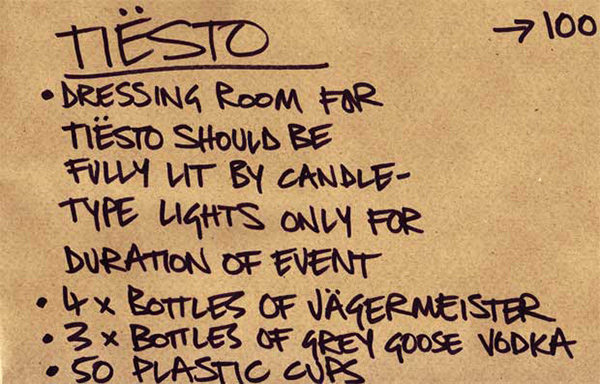 TIËSTO → 100
• DRESSING ROOM FOR
TIËSTO SHOULD BE
FULLY LIT BY CANDLE-
TYPE LIGHTS ONLY FOR
DURATION OF EVENT
• 4 x BOTTLES OF JÄGERMEISTER
• 3 x BOTTLES OF GREY GOOSE VODKA
• 50 PLASTIC CUPS